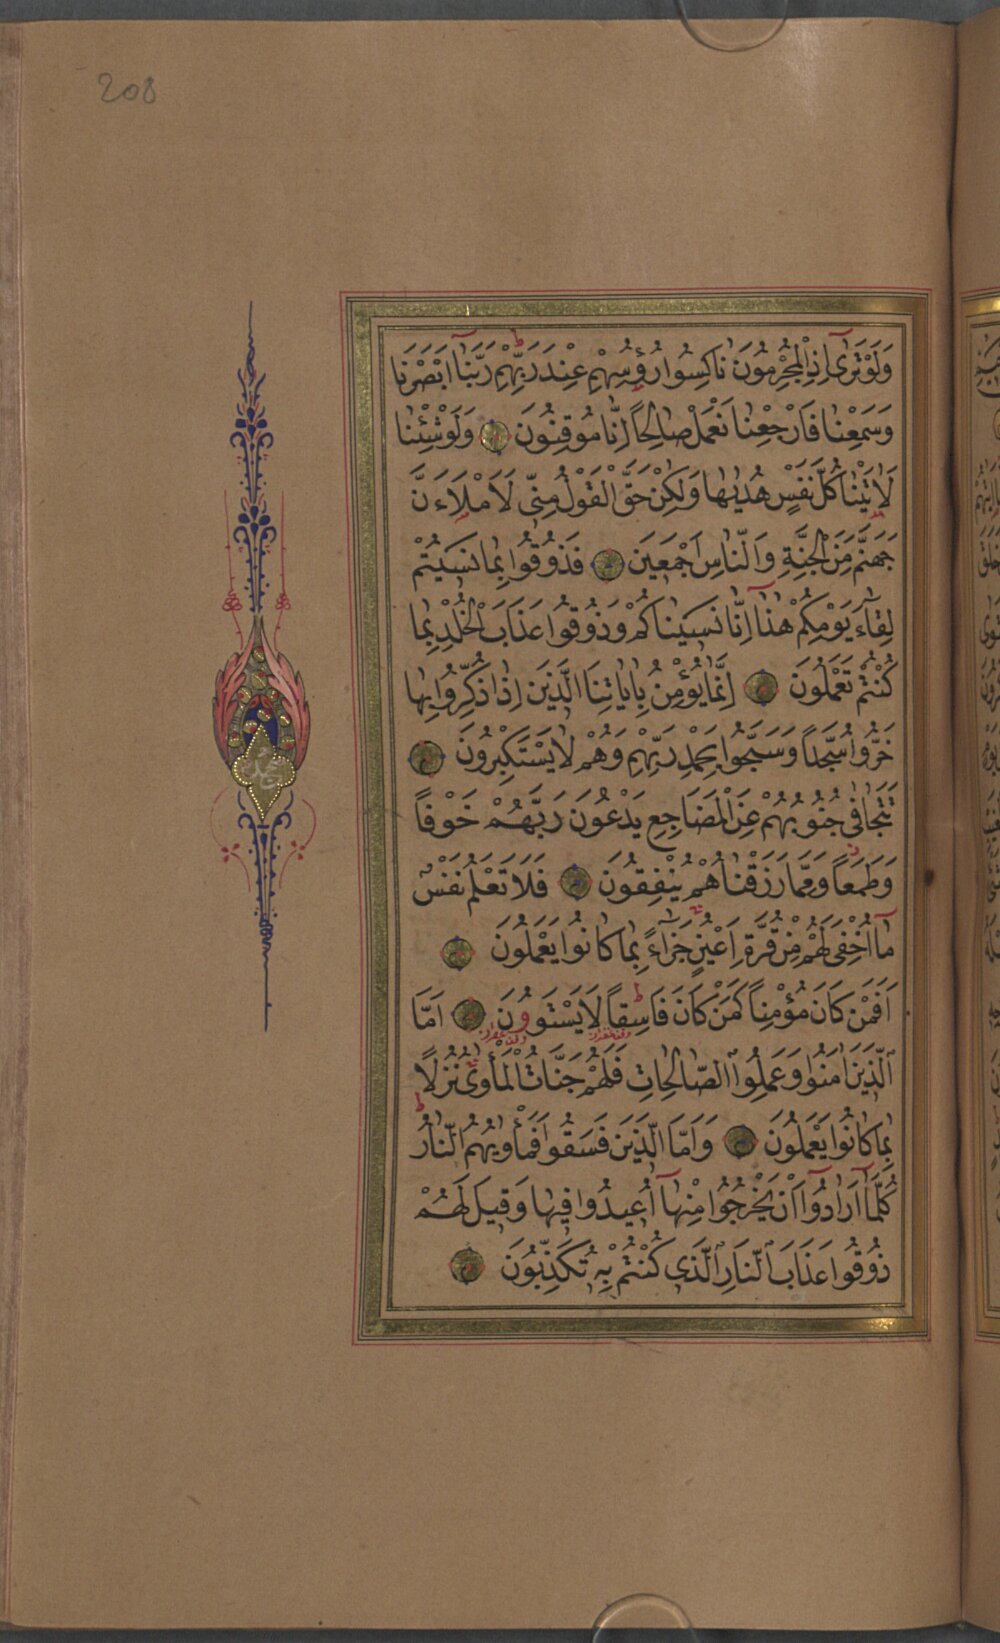 208
وَلَوْ تَرٰٓى اِذِ الْمُجْرِمُونَ نَاكِسُوا رُؤُسِهِمْ عِنْدَ رَبِّهِمْ رَبَّنَٓا اَبْصَرْنَا
وَسَمِعْنَا فَارْجِعْنَا نَعْمَلْ صَالِحًا اِنَّا مُوقِنُونَ وَلَوْ شِئْنَا
لَاٰتَيْنَا كُلَّ نَفْسٍ هُدٰيهَا وَلٰكِنْ حَقَّ الْقَوْلُ مِنّى لَاَمْلَاَءَنَّ
جَهَنَّمَ مِنَ الْجِنَّةِ وَالنَّاسِ اَجْمَعِينَ فَذُوقُوا بِمَا نَسِيتُمْ
لِقَٓاءَ يَوْمِكُمْ هٰذَٓا اِنَّا نَسِينَاكُمْ وَذُوقُوا عَذَابَ الْخُلْدِ بِمَا
كُنْتُمْ تَعْمَلُونَ اِنَّمَا يُؤْمِنُ بِاٰيَاتِنَا الَّذِينَ اِذَا ذُكِّرُوا بِهَا
خَرُّوا سُجَّدًا وَسَبَّحُوا بِحَمْدِ رَبِّهِمْ وَهُمْ لَا يَسْتَكْبِرُونَ
تَتَجَافٰى جُنُوبُهُمْ عَنِ الْمَضَاجِعِ يَدْعُونَ رَبَّهُمْ خَوْفًا
وَطَمَعًا وَمِمَّا رَزَقْنَاهُمْ يُنْفِقُونَ فَلَا تَعْلَمُ نَفْسٌ
مَٓا اُخْفِىَ لَهُمْ مِنْ قُرَّةِ اَعْيُنٍ جَزَٓاءً بِمَا كَانُوا يَعْمَلُونَ
اَفَمَنْ كَانَ مُؤْمِنًا كَمَنْ كَانَ فَاسِقًا لَا يَسْتَوُونَ اَمَّا
الَّذِينَ اٰمَنُوا وَعَمِلُوا الصَّالِحَاتِ فَلَهُمْ جَنَّاتُ الْمَأْوٰى نُزُلًا
بِمَا كَانُوا يَعْمَلُونَ وَاَمَّا الَّذِينَ فَسَقُوا فَمَأْوٰيهُمُ النَّارُ
كُلَّمَٓا اَرَادُٓوا اَنْ يَخْرُجُوا مِنْهَٓا اُعِيدُوا فِيهَا وَقِيلَ لَهُمْ
ذُوقُوا عَذَابَ النَّارِ الَّذِى كُنْتُمْ بِهٖ تُكَذِّبُونَ